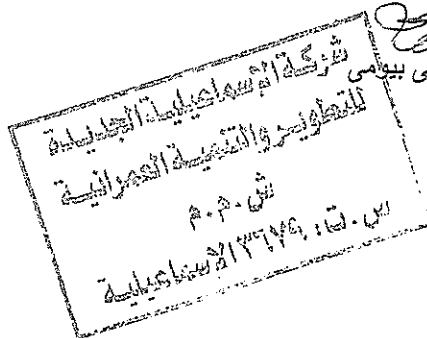 ى بيومى
شركة الإسماعيلية الجديدة
للتطوير والتنمية العمرانية
ش.م.م
س.ت: ٣٦٧٤٩ الإسماعيلية